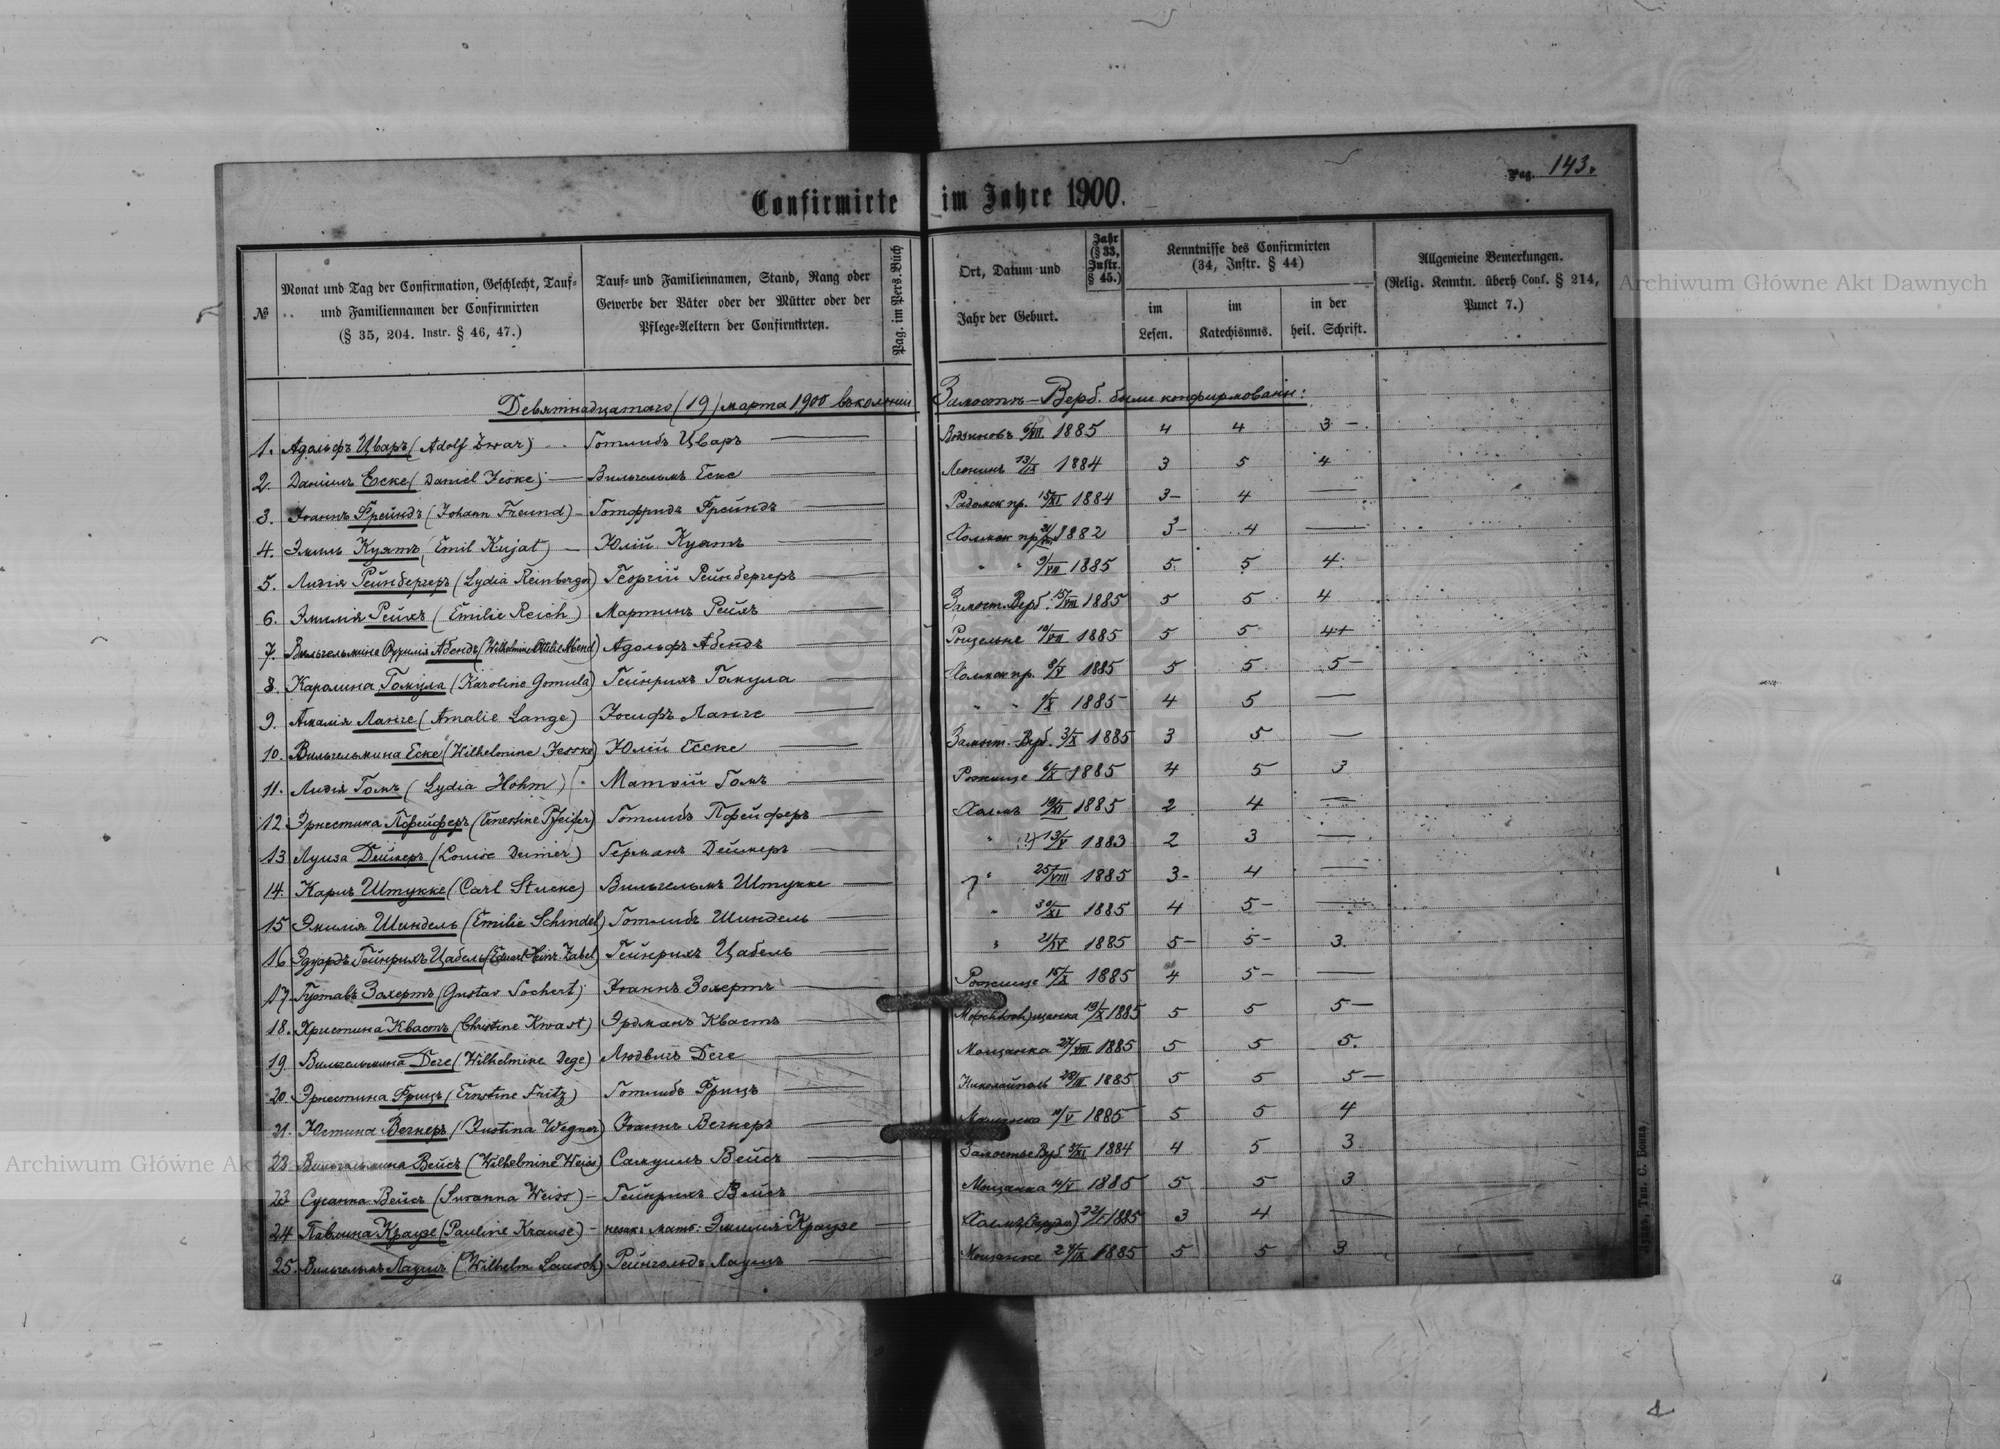 Pag. 143.
Confirmirte im Jahre 1900.
№
Monat und Tag der Confirmation, Geschlecht, Tauf-
und Familiennamen der Confirmirten
(§ 35, 204. Instr. § 46, 47.)
Tauf- und Familiennamen, Stand, Rang oder
Gewerbe der Väter oder der Mütter oder der
Pflege-Aeltern der Confirmirten.
Pag. im Pers. Buch
Ort, Datum und
Jahr der Geburt.
Jahr
(§ 33,
Instr.
§ 45.)
Kenntnisse des Confirmirten
(34, Instr. § 44)
im
Lesen.
im
Katechismus.
in der
heil. Schrift.
Allgemeine Bemerkungen.
(Relig. Kenntn. überh Conf. § 214,
Punct 7.)
Archiwum Główne Akt Dawnych
Девятнадцатаго (19) марта 1900 въ колонии Замостъ-Верб. были конфирмованы:
1. Адольфъ Цваръ (Adolf Zwar) Готлибъ Цваръ 1885 4 4 3 —
2 Даніилъ Еске (Daniel Jeske) — Вильгельмъ Еске 13/IX 1884 3 5 4
3. Іоаннъ Фрейндъ (Johann Freund) — Готфридъ Фрейндъ Радомск пр. 15/XI 1884 3- 4 —
4. Эмиль Куятъ (Emil Kujat) — Юлій Куятъ Холмск пр. 1882 3- 4 —
5. Лидія Рейнбергеръ (Lydia Reinberger) Георгій Рейнбергеръ " " 9/VII 1885 5 5 4
6. Эмилія Рейхъ (Emilie Reich) Мартинъ Рейхъ Замост. Верб. 15/VIII 1885 5 5 4
7. Вильгельмина Оттилія Абендъ (Wilhelmine Ottilie Abend) Адольфъ Абендъ 10/VII 1885 5 5 4+
8. Каролина Гомула (Karoline Gomula) Гейнрихъ Гомула Холмск пр. 9/V 1885 5 5 5 —
9. Амалія Ланге (Amalie Lange) Іосифъ Ланге " " 1885 4 5 —
10. Вильгельмина Еске (Wilhelmine Jesske) Юлій Еске Замост. Верб. 3/X 1885 3 5 —
11. Лидія Гомъ (Lydia Höhm) Матвій Гомъ Рожище 6/X 1885 4 5 3
12 Эрнестина Пфейферъ (Ernestine Pfeifer) Готлибъ Пфейферъ Холмъ 19/XI 1885 2 4 —
13 Луиза Деймеръ (Louise Deimer) Германъ Деймеръ " 13/V 1883 2 3 —
14. Карлъ Штукке (Carl Stucke) Вильгельмъ Штукке " 25/VIII 1885 3- 4 —
15 Эмилія Шиндель (Emilie Schindel) Готлибъ Шиндель " 30/XI 1885 4 5- —
16 Эдуардъ Гейнрихъ Цабель (Eduard Heinr. Zabel) Гейнрихъ Цабель " 21/IV 1885 5- 5- 3.
17 Густавъ Зохертъ (Gustav Sochert) Іоаннъ Зохертъ Рожище 15/X 1885 4 5- —
18. Христина Квастъ (Christine Kwast) Эрдманъ Квастъ 19/X 1885 5 5 5 —
19. Вильгельмина Деге (Wilhelmine Dege) Людвигъ Деге Мощанка 27/VIII 1885 5 5 5.
20. Эрнестина Фрицъ (Ernstine Fritz) Готлибъ Фрицъ Николайполь 28/III 1885 5 5 5 —
21. Юстина Вегнеръ (Justina Wegner) Іоаннъ Вегнеръ 1885 5 5 4
22 Вильгельмина Вейсъ (Wilhelmine Weiss) Самуилъ Вейсъ Замостье Верб 1884 4 5 3
23 Сусанна Вейсъ (Susanna Weiss) — Гейнрихъ Вейсъ Мощанка 4/V 1885 5 5 3
24 Павлина Краузе (Pauline Krause) — незак. мать: Эмилія Краузе 1885 3 4 —
25. Вильгельмъ Лаушъ (Wilhelm Lausch) Рейнгольдъ Лаушъ Мощанке 24/IX 1885 5 5 3
Archiwum Główne Akt
Тип. С. Бонка